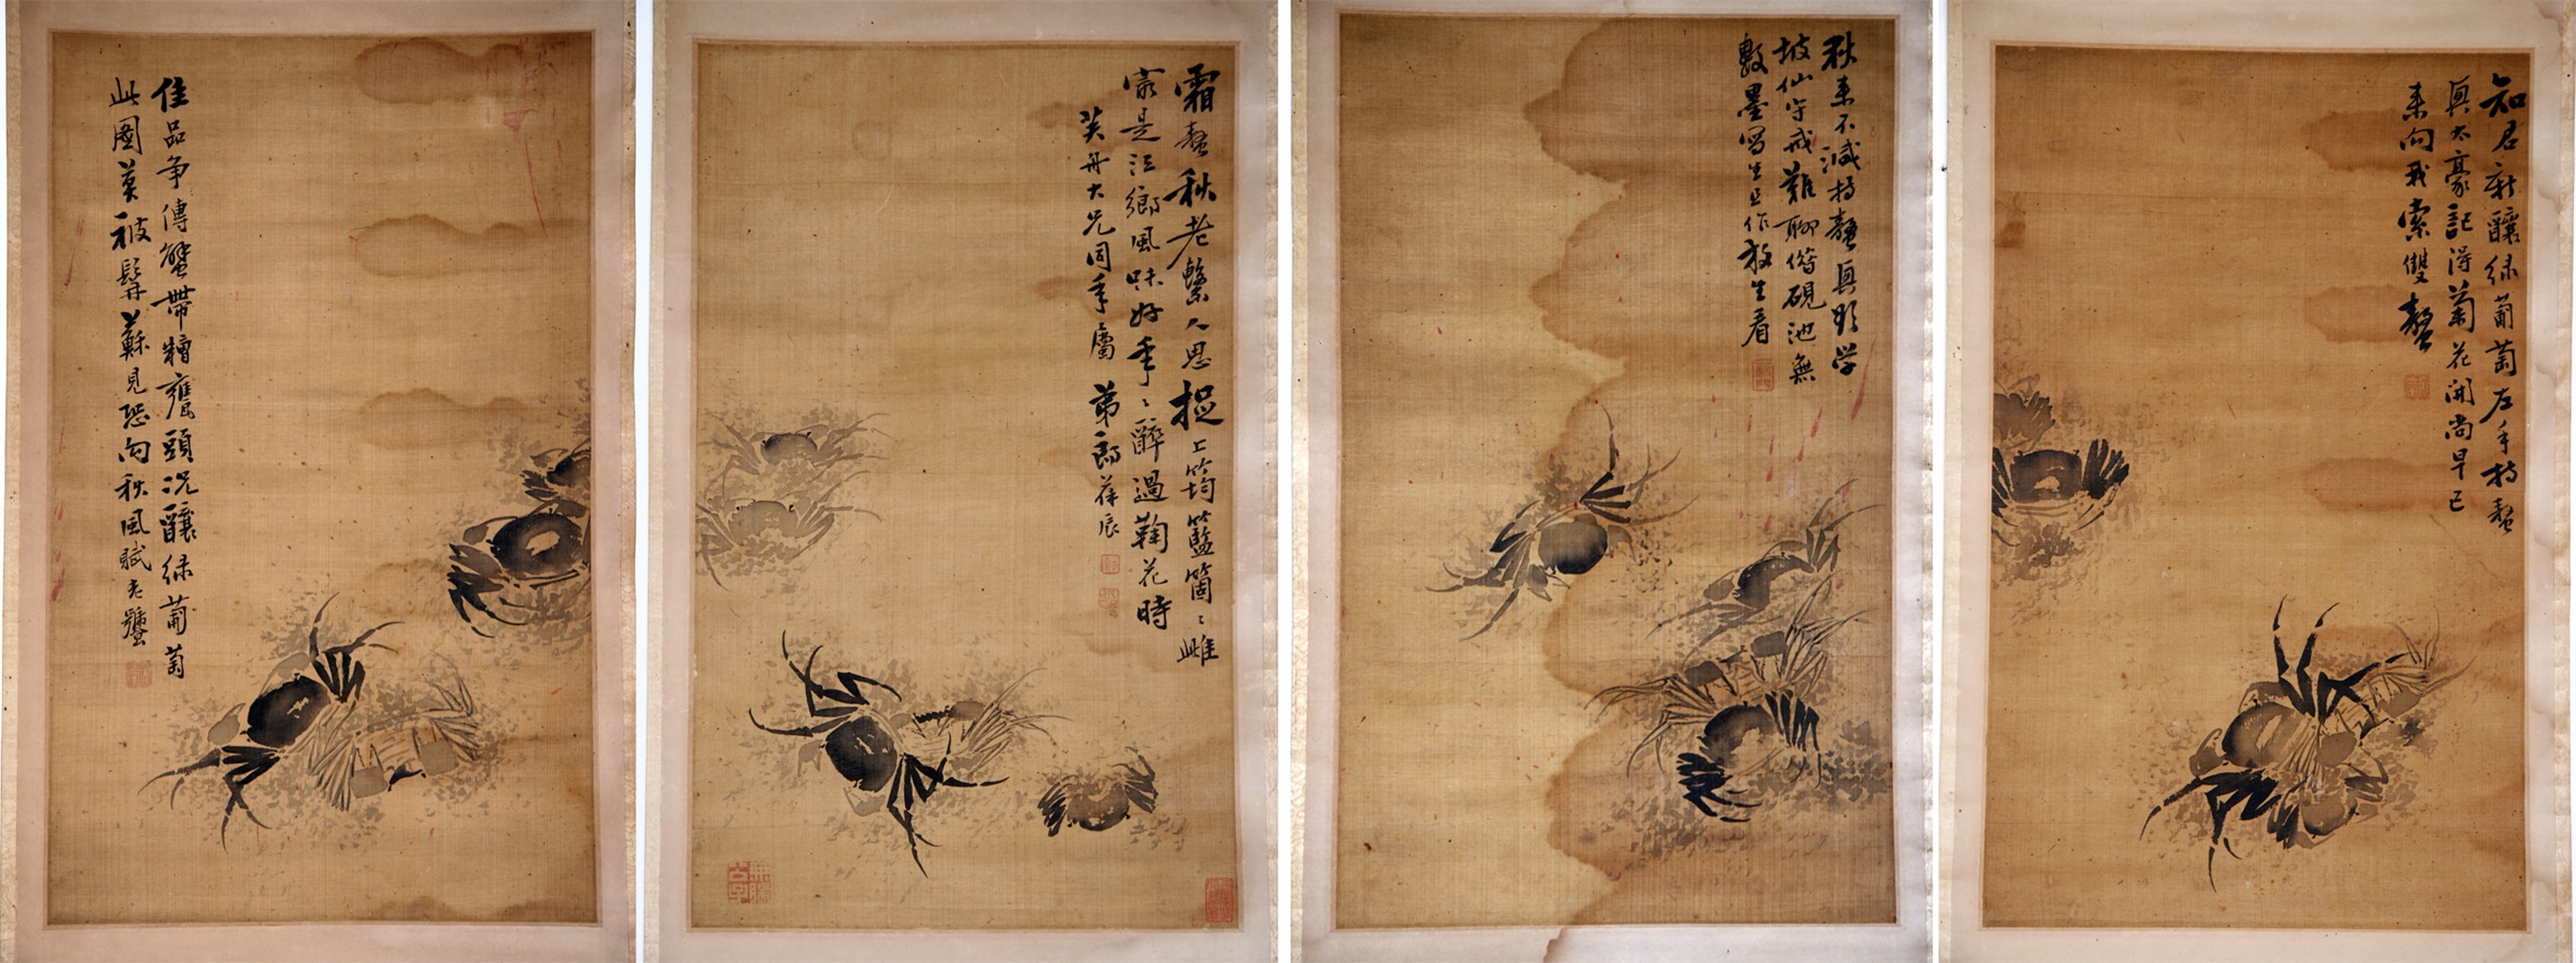 佳品争傳蟹帶糟甕頭況釀緑葡萄
此圖莫被髯蘇見恐向秋風賦老饕
霜螯秋老繫人思捉上筠籃箇〻雌
㝡是江鄉風味好年〻醉過鞠花時
芙舟大兄同年屬 弟郎葆辰
無腸公子
秋来不減持螯興那学
坡仙守戒難聊借硯池無
數墨寫生且作放生看
知君新釀緑葡萄左手持螯
興太豪記得菊花開尚早已
来向我索雙螯